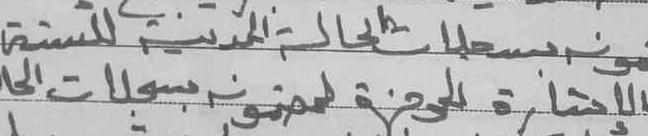 بسجلات الحالة المدنية للسنة
الإشارة الموجزة لمضمون بسجلات الحا